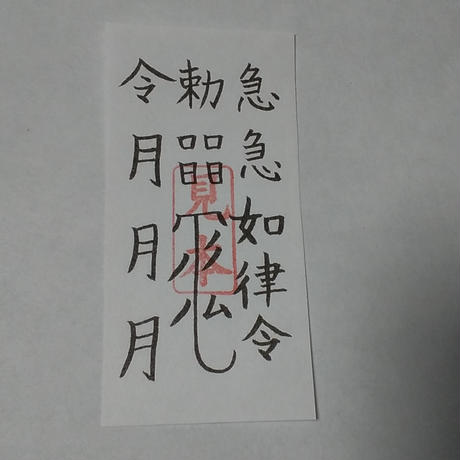 急急如律令
勅
令月月月
見本